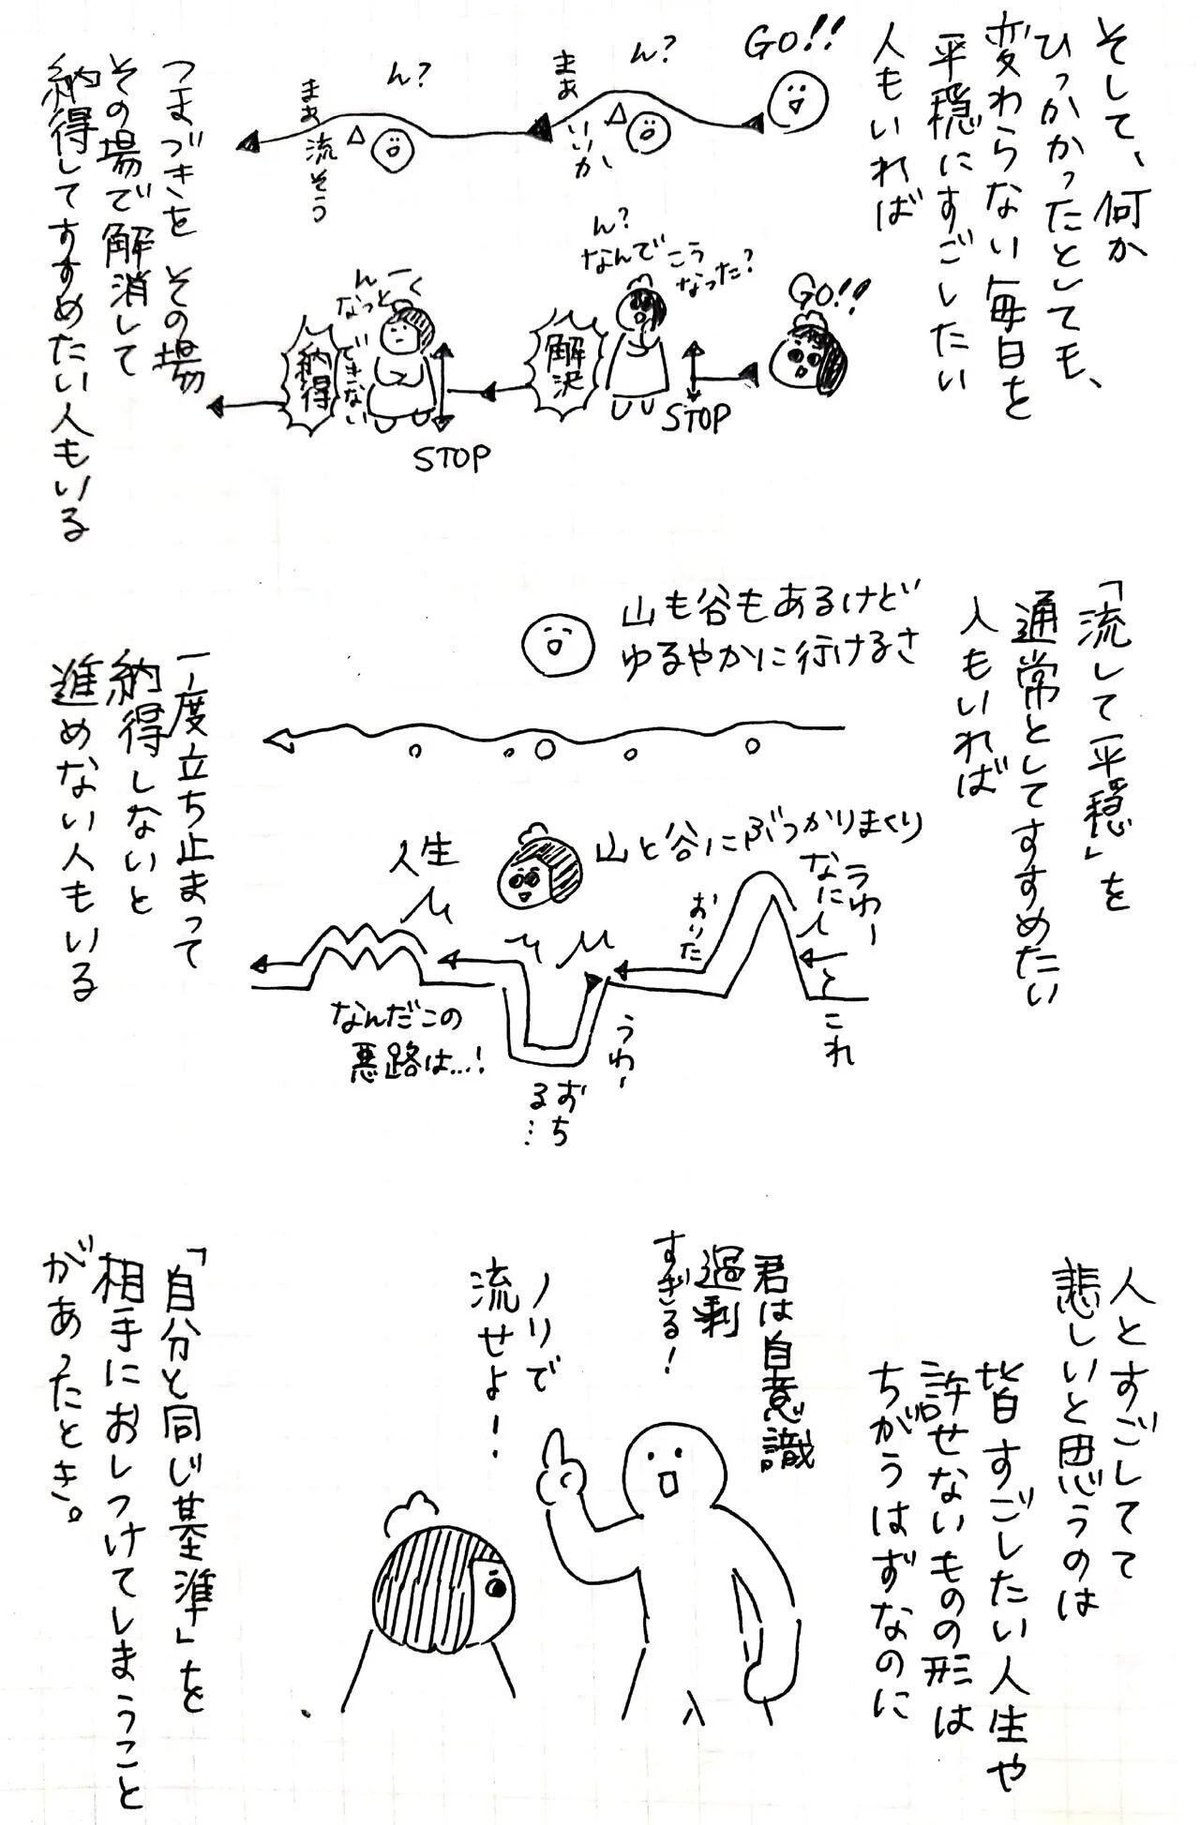 そして、何か
ひっかかったとしても、
変わらない毎日を
平穏にすごしたい
人もいれば
GO!!
ん?
まぁ
いいか
ん?
まぁ
流そう
GO!!
STOP
ん?
なんでこう
なった?
解決
STOP
んーく
なっと
できない
納得
つまづきを その場
その場で解消して
納得してすすめたい人もいる
「流して平穏」を
通常としてすすめたい
人もいれば
山も谷もあるけど
ゆるやかに行けるさ
山と谷にぶつかりまくり
人生
うわー
なに
これ
おりた
うわー
おち
る…
なんだこの
悪路は…!
一度立ち止まって
納得しないと
進めない人もいる
人とすごしてて
悲しいと思うのは
皆すごしたい人生や
許せないものの形は
ちがうはずなのに
君は自意識
過剰
すぎる!
ノリで
流せよ!
「自分と同じ基準」を
相手におしつけてしまうこと
があったとき。